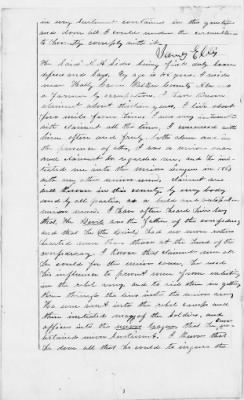 in every sentiment contained in this question
and done all I could under the circumstances
to
The said N. H. Sides being first duly sworn
deposes and says, My age is 45 years. I reside
near Holly
a farmer by occupation I have known
claimant about thirteen years, I live about
five miles from him. I was very intimate
with claimant all the time, I conversed with
him often and freely both alone and in
the presence of others, I was a union man
and claimant so regarded me, and he ini-
tiated me into the union league in 1863
with many other union men, claimant was
well known in this county by every body
and by all parties, as a bold and outspoken
union man. I have often heard him say
that the Devil was the father of the confederacy
and that he the devil had no more union
hearted men than those at the head of the
confederacy. I know that claimant done all
he could for the union cause, he used
his influence to prevent men from enlisting
in the rebel army and to aid them in getting
them through the lines into the union army
He even went into the rebel camps and
there initiated many of the soldiers, and
officers into the union League that he knew en-
tertained union sentiment. I know that
he done all that he could to injure the